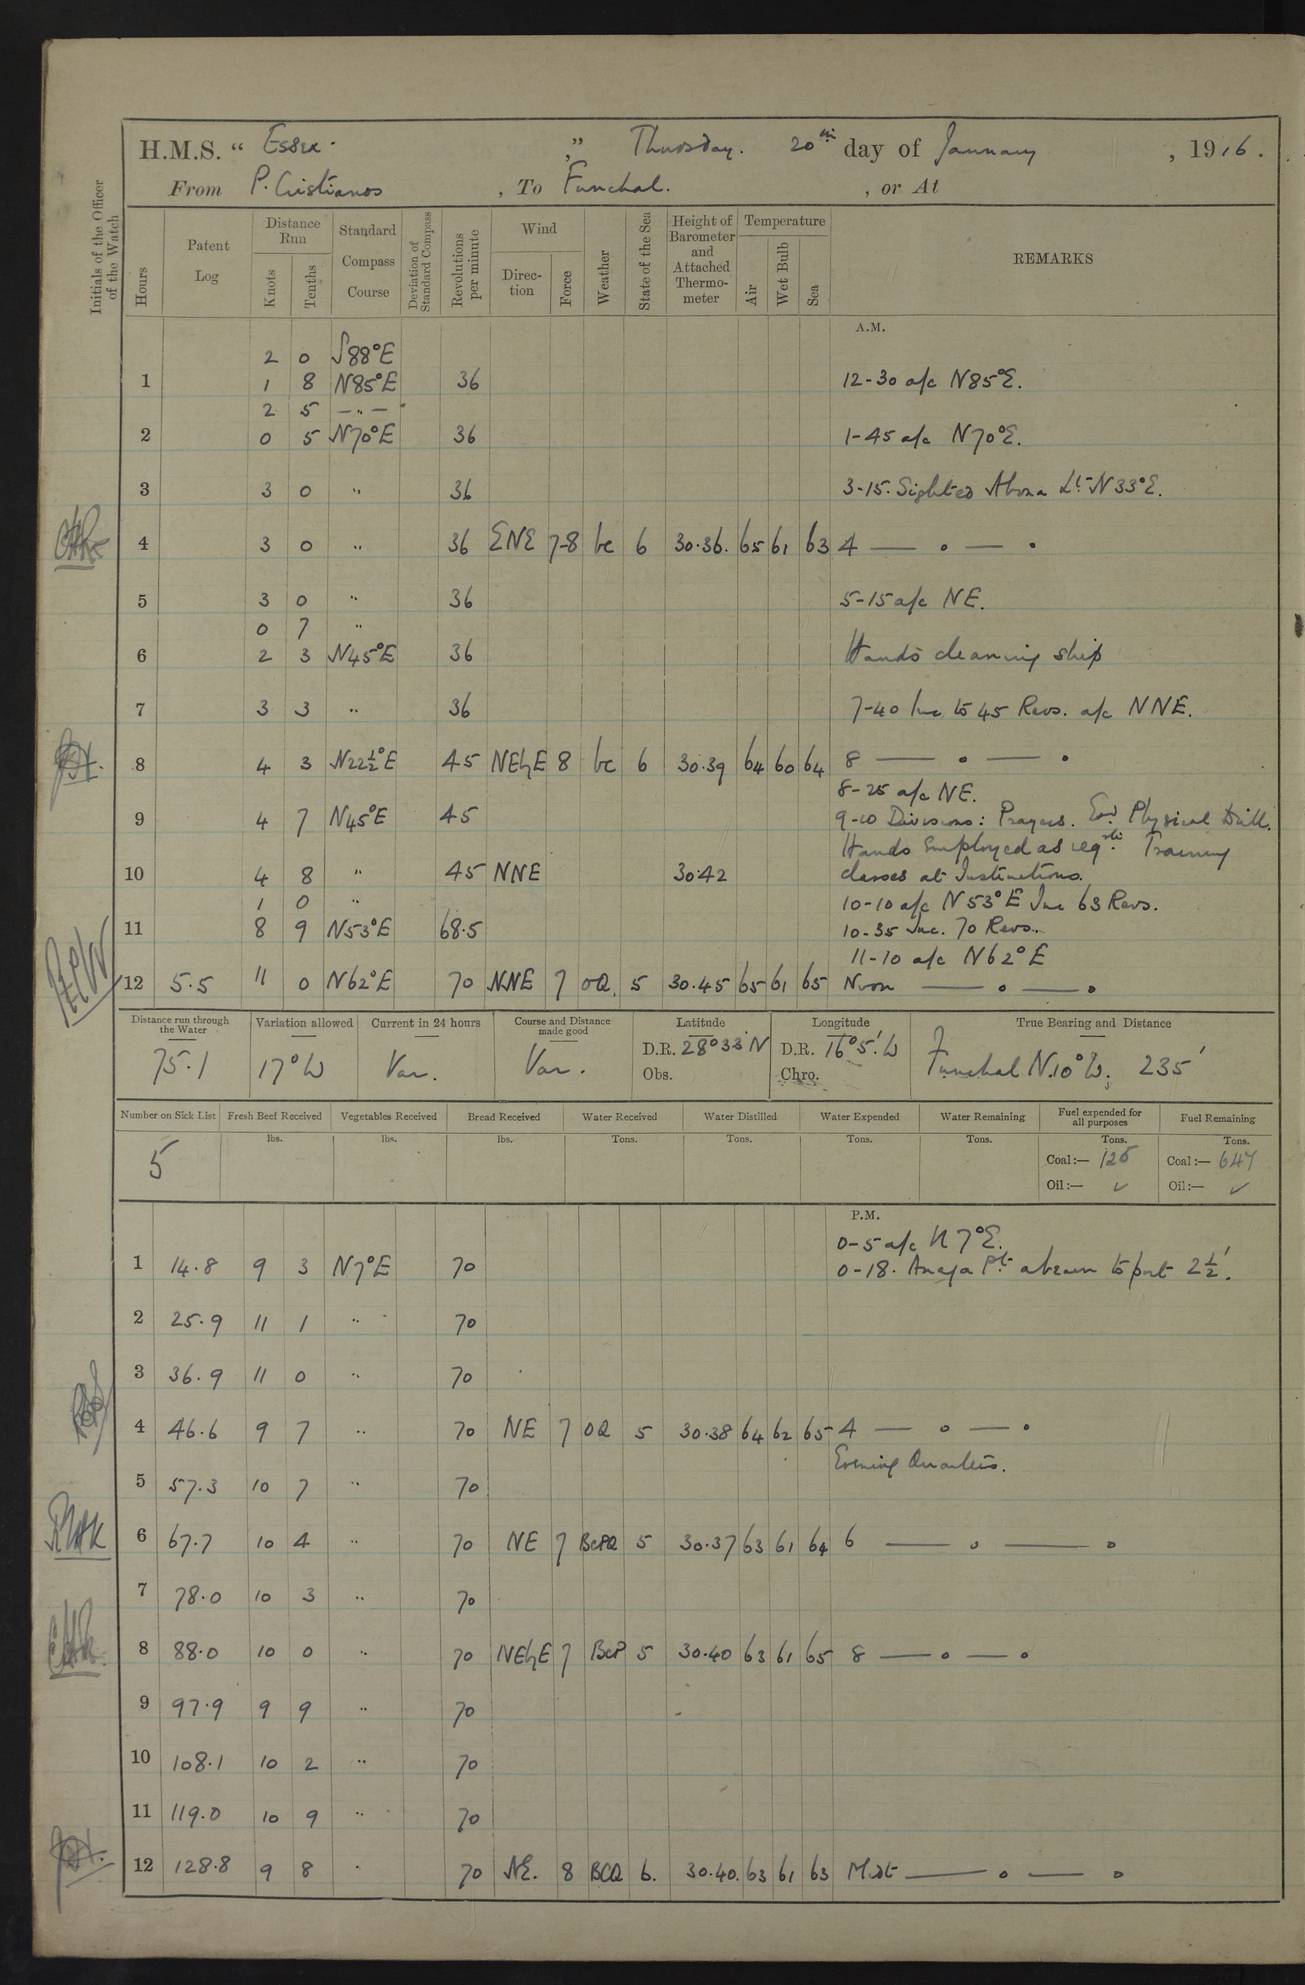 H.M.S. “ Essex. ,” Thursday. 20th day of January, 1916.
From P. Cristianos, To Funchal., or At
Initials of the Officer of the Watch
Hours
Patent Log
Distance Run
Knots
Tenths
Standard Compass Course
Deviation of Standard Compass
Revolutions per minute
Wind
Direc-tion
Force
Weather
State of the Sea
Height of Barometer and Attached Thermo-meter
Temperature
Air
Wet Bulb
Sea
REMARKS
A.M.
2 0 S88°E
1 1 8 N85°E 36 12-30 a/c N85°E.
2 5 — „ —
2 0 5 N70°E 36 1-45 a/c N70°E.
3 3 0 „ 36 3-15. Sighted Abona Lt. N33°E.
4 3 0 „ 36 ENE 7-8 bc 6 30.36. 65 61 63 4 — • — •
5 3 0 „ 36 5-15 a/c NE.
0 7 „
6 2 3 N45°E 36 Hands cleaning ship
7 3 3 „ 36 7-40 Inc to 45 Revs. a/c NNE.
8 4 3 N22½°E 45 NEbyE 8 bc 6 30.39 64 60 64 8 — • — •
8-25 a/c NE.
9 4 7 N45°E 45 9-10 Divisions: Prayers. Physical Drill.
Hands Employed as reqte. Training
10 4 8 „ 45 NNE 30.42 classes at Instructions.
1 0 „ 10-10 a/c N53°E Inc 63 Revs.
11 8 9 N53°E 68.5 10-35 Inc. 70 Revs.
11-10 a/c N62°E
12 5.5 11 0 N62°E 70 NNE 7 OQ. 5 30.45 65 61 65 Noon — • — •
Distance run through the Water
75.1
Variation allowed
17°W
Current in 24 hours
Var.
Course and Distance made good
Var.
Latitude
D.R. 28°33'N
Obs.
Longitude
D.R. 16°5'.W
Chro.
True Bearing and Distance
Funchal N.10°W. 235'
Number on Sick List
5
Fresh Beef Received
lbs.
Vegetables Received
lbs.
Bread Received
lbs.
Water Received
Tons.
Water Distilled
Tons.
Water Expended
Tons.
Water Remaining
Tons.
Fuel expended for all purposes
Tons.
Coal:— 126
Oil:— ✓
Fuel Remaining
Tons.
Coal:— 647
Oil:— ✓
P.M.
0-5 a/c N7°E.
1 14.8 9 3 N7°E 70 0-18. Anaga Pt. abeam to port 2½'.
2 25.9 11 1 „ 70
3 36.9 11 0 „ 70
4 46.6 9 7 „ 70 NE 7 OQ 5 30.38 64 62 65 4 — • — •
Evening Quarters.
5 57.3 10 7 „ 70
6 67.7 10 4 „ 70 NE 7 BCPQ 5 30.37 63 61 64 6 — • — •
7 78.0 10 3 „ 70
8 88.0 10 0 „ 70 NEbyE 7 BCP 5 30.40 63 61 65 8 — • — •
9 97.9 9 9 „ 70
10 108.1 10 2 „ 70
11 119.0 10 9 „ 70
12 128.8 9 8 „ 70 NE. 8 BCQ 6. 30.40. 63 61 63 Midt — • — •